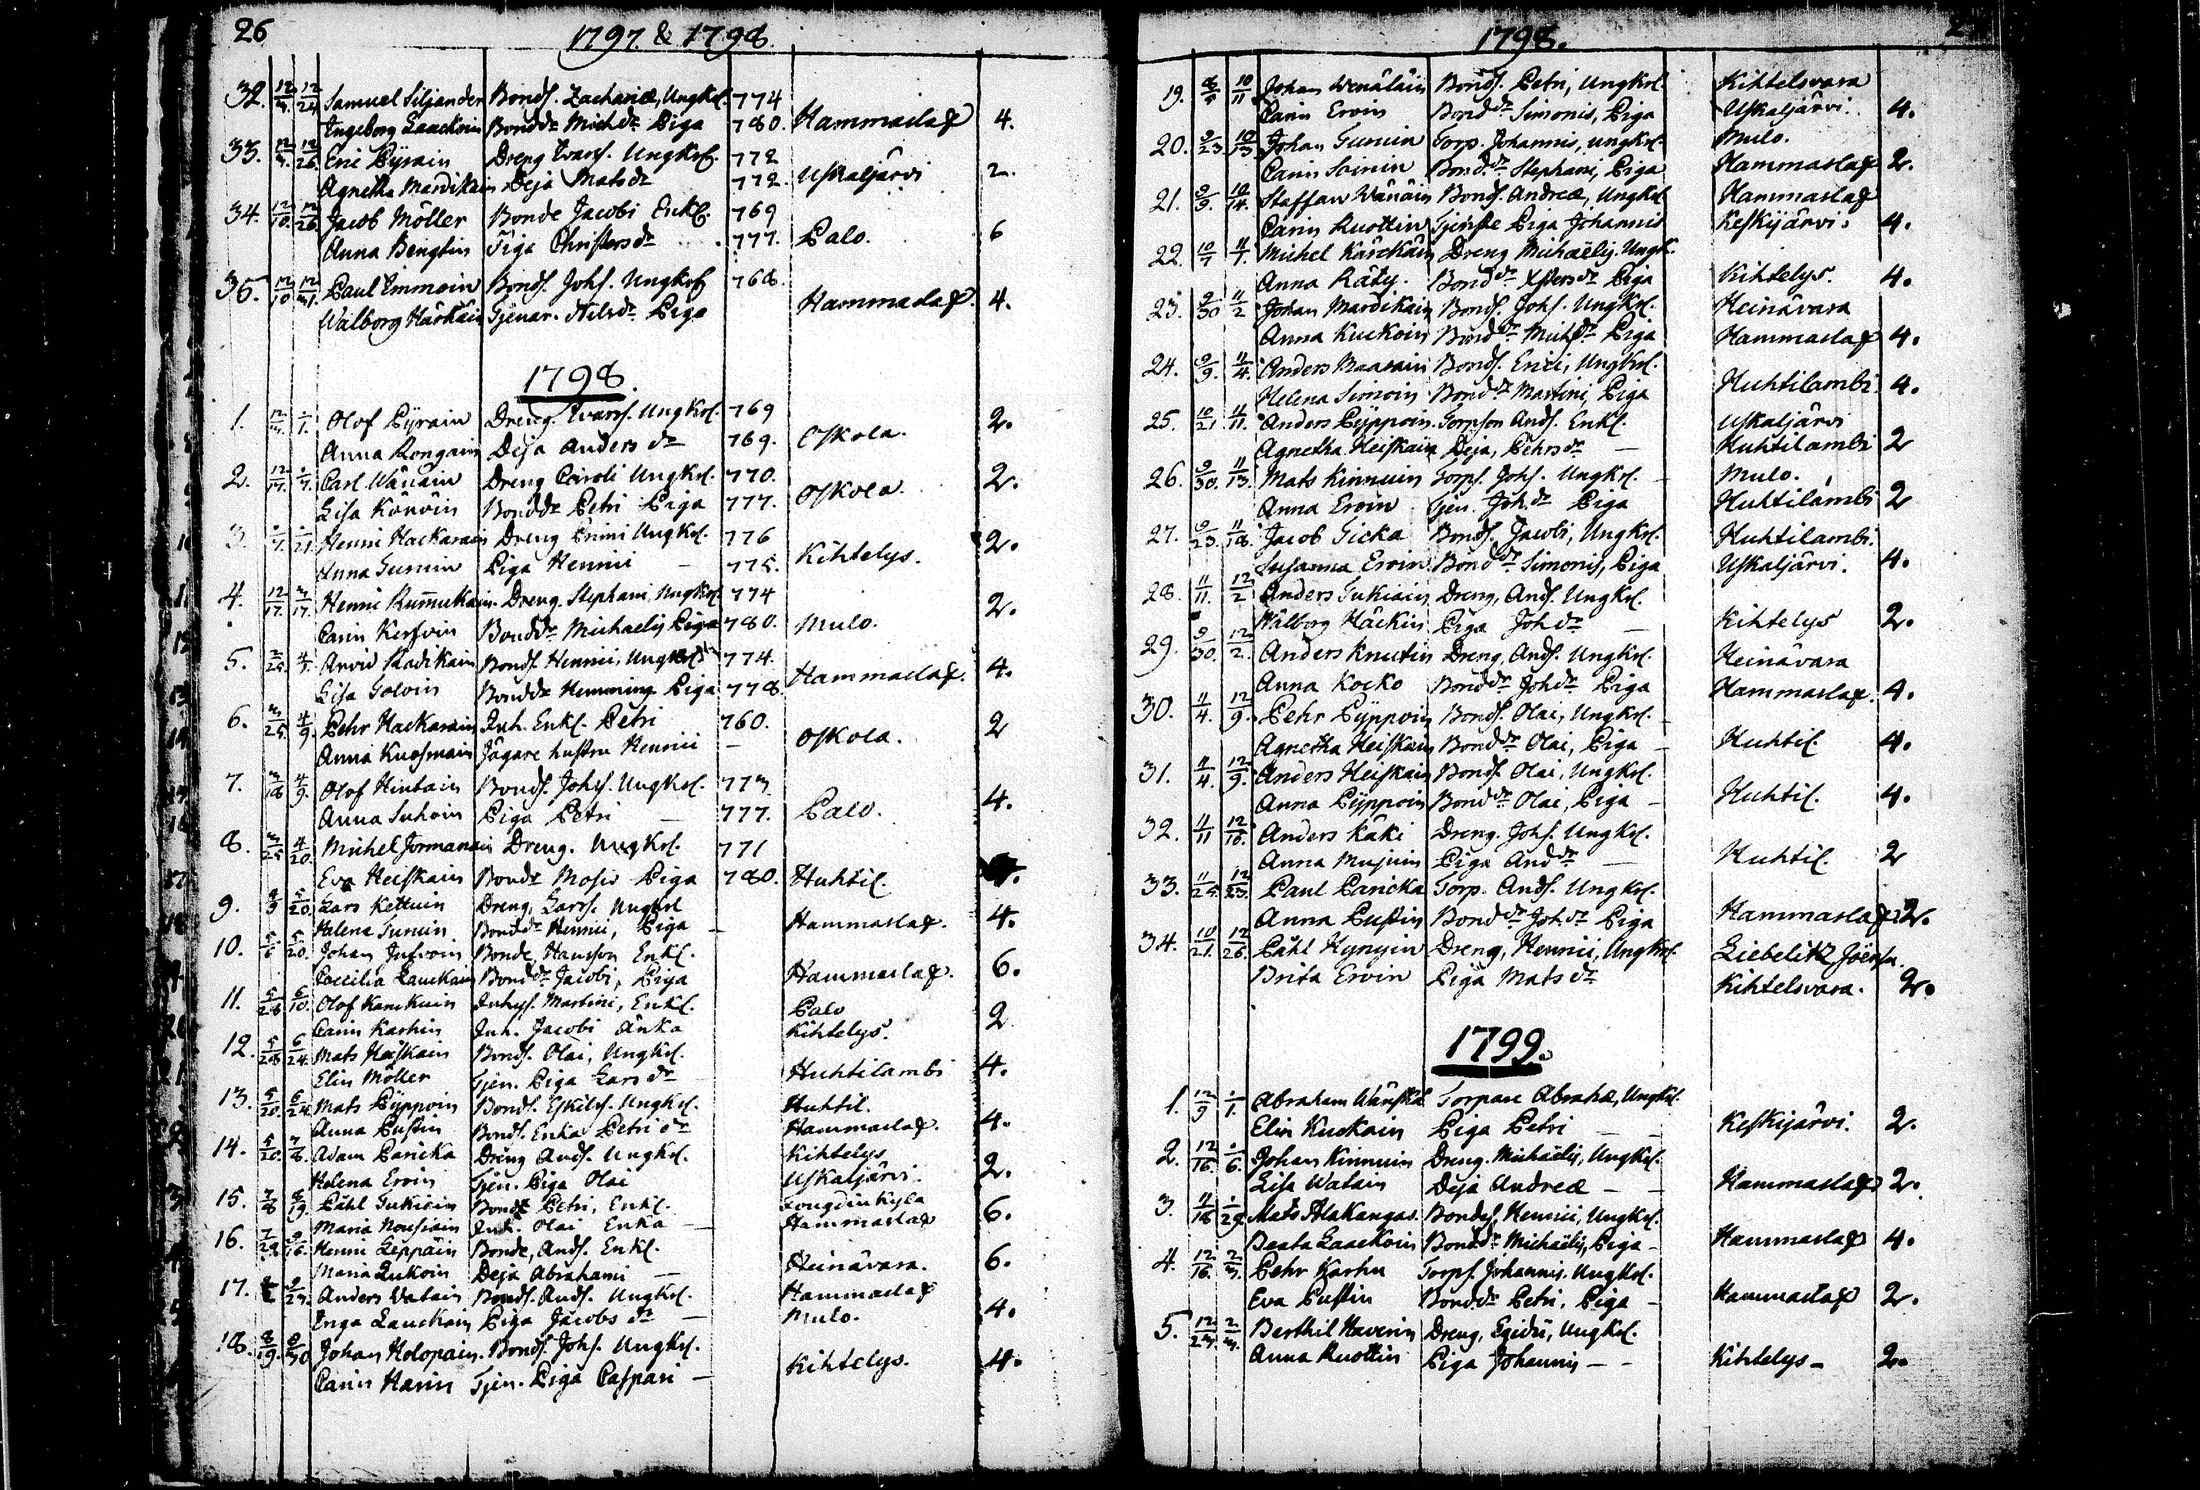 26
1797. & 1798.
32. 12/3. 12/24 Samuel Siljander Bonds. Zachariæ, Ungkrl. 774
Ingeborg Laackoin Bonddr Michdr Piga 780. Hammaslax 4.
33. 12/3. 12/26. Eric Pyrain Dreng Ivarss. Ungkrl. 772
Agnetha Mardikain Deja Matsdr 772. Uskaljärvi 2.
34. 12/10. 12/26. Jacob Möller Bonde Jacobi Enkl. 769
Anna Bengtin Piga Christersdr 777. Palo. 6
35. 12/10 12/31. Paul Immoin Bonds. Johs. Ungkrl 768.
Walborg Härkäin Tjenar. Nilsdr Piga Hammaslax. 4.
1798.
1. 12/3. 1/1. Olof Pyrain Dreng. Ivarss. Ungkrl. 769
Anna Rongain Deja Andersdr 769. Oskola. 2.
2. 12/17. 1/7. Carl Wänäin Dreng Caroli Ungkrl. 770.
Lisa Körvin Bonddr Petri Piga 777. Oskola. 2.
3. 1/1. 1/21. Henric Hackarain Dreng Ungkrl. 776
Anna Turunin Piga Henrici – 775. Kihtelys. 2.
4. 12/17. 3/17. Henric Rummukain. Dreng. Stephani Ungkrl. 774
Carin Kerfvin Bonddr Michaelis Piga 780. Mulo. 2.
5. 2/25. 4/7. Arvid Radikain Bonds. Henrici, Ungkrl 774.
Lisa Golvin Bonddr Hemming Piga 778. Hammaslax. 4.
6. 3/25. 4/9. Pehr Hackarain Inh. Enkl. Petri 760.
Anna Kuosmain Jägare hustru Henrici – Oskola. 2
7. 3/18 4/9. Olof Hintain Bonds. Johs. Ungkrl. 773.
Anna Suhoin Piga Petri – 777. Palo. 4.
8. 3/25 4/20. Michel Jormanain Dreng. Ungkrl. 771
Eva Heiskain Bonddr Mosis Piga 780. Huhtil.
9. 4/9 5/20. Lars Kettuin Dreng, Larss. Ungkrl
Helena Turuin Bonddr Henrici, Piga – Hammaslax. 4.
10. 5/6 5/20. Johan Jufvoin Bonde, Hansson Enkl.
Cæcilia Lauckain Bonddr Jacobi, Piga Hammaslax. 6.
11. 5/28 6/10. Olof Kauckuin Inhys. Martini, Enkl. Palo
Carin Karhin Inh. Jacobi änka Kihtelys. 2
12. 5/28 6/24. Mats Heiskain Bonds. Olai, Ungkrl.
Elin Möller Tjen. Piga Larsdr Huhtilambi 4.
13. 5/20. 6/24. Mats Pyppoin Bonds. Eskilss. Ungkrl. Huhtil.
Anna Pustin Bonds. Enka Petri dr Hammaslax. 4.
14. 5/20. 7/8. Adam Paricka Dreng Ands. Ungkrl. Kihtelys
Helena Ervin Tjen. Piga Olai Uskaljärvi. 2.
15. 7/8 8/19. Påhl Tukiain Bonde Petri, Enkl.
Maria Nousiain Inh. Olai Enka – Hammaslax 6.
16. 7/29 9/16. Henric Leppäin Bonde, Ands. Enkl.
Maria Lukoin Deja Abrahami – Heinävara. 6.
17. 9/23. Anders Watain Bonds. Ands. Ungkrl. Hammaslax
Inga Lauckain Piga Jacobs dr – Mulo. 4.
18. 8/19. 9/30 Johan Holopain. Bonds. Johs. Ungkrl.
Carin Harin Tjen. Piga Caspari – Kihtelys. 4.
1798.
19. 8/5 10/11. Johan Wenäläin Bonds. Petri, Ungkrl. Kihtelsvara
Carin Ervin Bonddr Simonis, Piga Uskaljärvi. 4.
20. 9/23 10/13. Johan Turuin Torp. Johannis, ungkrl. Mulo.
Carin Soinin Bonddr Stephani, Piga Hammaslax 2.
21. 9/9. 10/14. Staffan Wänäin Bonds. Andreæ, Ungkrl Hammaslax
Carin Ruottin Tjenste Piga Johannis Keskijärvi. 4.
22. 10/7 11/1. Michel Kärckäin Dreng Michaëlis. Ungk.
Anna Räty. Bonddr Xstersdr Piga Kihtelys. 4.
23. 9/30 11/2 Johan Mardikain Bonds. Johs. Ungkrl. Heinävara
Anna Kuckoin Bonddr Michdr Piga Hammaslax 4.
24. 9/9. 11/4. Anders Maarain Bonds. Erici, Ungkrl.
Helena Simoin Bonddr Martini, Piga Huhtilambi. 4.
25. 10/21 11/11. Anders Pyppoin. Torpson Ands. Enkl. Uskaljärvi
Agnetha Heiskain Deja, Pehrsdr – Huhtilambi 2
26. 9/30. 11/13. Mats Kinnuin Torps. Johs. Ungkrl. – Mulo.
Anna Ervin Tjen. Johdr Piga Huhtilambi 2
27. 9/23. 11/18. Jacob Ticka Bonds. Jacobi, Ungkrl. Huhtilambi.
Susanna Ervin Bonddr Simonis, Piga Uskaljärvi. 4.
28. 11/11. 12/2 Anders Tukiain Dreng, Ands. Ungkrl.
Walborg Häckin Piga Johdr – Kihtelys 2.
29. 9/30. 12/2. Anders Knutin Dreng, Ands. Ungkrl. Heinävara
Anna Kocko Bonddr Johdr Piga Hammaslax. 4.
30. 11/4. 12/9. Pehr Pyppoin Bonds. Olai, Ungkrl.
Agnetha Heiskain Bonddr Olai, Piga – Huhtil. 4.
31. 11/4. 12/9. Anders Heiskain Bonds. Olai, Ungkrl.
Anna Pyppoin Bonddr Olai, Piga – Huhtil. 4.
32. 11/11 12/16. Anders Käki Dreng. Johs. Ungkrl.
Anna Mujuin Piga Anddr – Huhtil. 2
33. 11/25. 12/23. Paul Paricka Torp. Ands. Ungkrl.
Anna Pustin Bonddr Johdr Piga Hammaslax 2.
34. 10/21. 12/26. Påhl Hynyin Dreng, Henrici, Ungkrl. Liebelitz
Brita Ervin Piga Matsdr Kihtelsvara. 2.
1799.
1. 12/9 1/1. Abraham Torpare Abrahæ, Ungkrl.
Elin Kuckain Piga Petri – Keskijärvi. 2.
2. 12/16. 1/6. Johan Kinnuin Dreng. Michaëlis, Ungkrl.
Lisa Watain Deja Andreæ – – Hammaslax 2.
3. 11/18 1/29. Mats Alakangas. Bondes. Henrici, Ungkrl.
Beata Laackoin Bonddr Michaëlis, Piga – Hammaslax 4.
4. 12/16. 2/3. Pehr Karhu Torps. Johannis. Ungkrl.
Eva Pustin Bonddr Petri, Piga – Hammaslax 2.
5. 12/23. 2/3. Berthil Haverin Dreng, Egidii, Ungkrl.
Anna Ruottin Piga Johannis – – Kihtelys – 2.